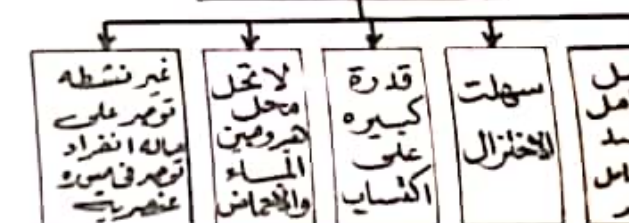 سهلت
الاختزال
قدرة
كبيره
على
اكتساب
لا تحل
محل
هيدروجين
الماء
والاحماض
غير نشطه
توجد على
حاله انفراد
توجد في صوره
عنصرية